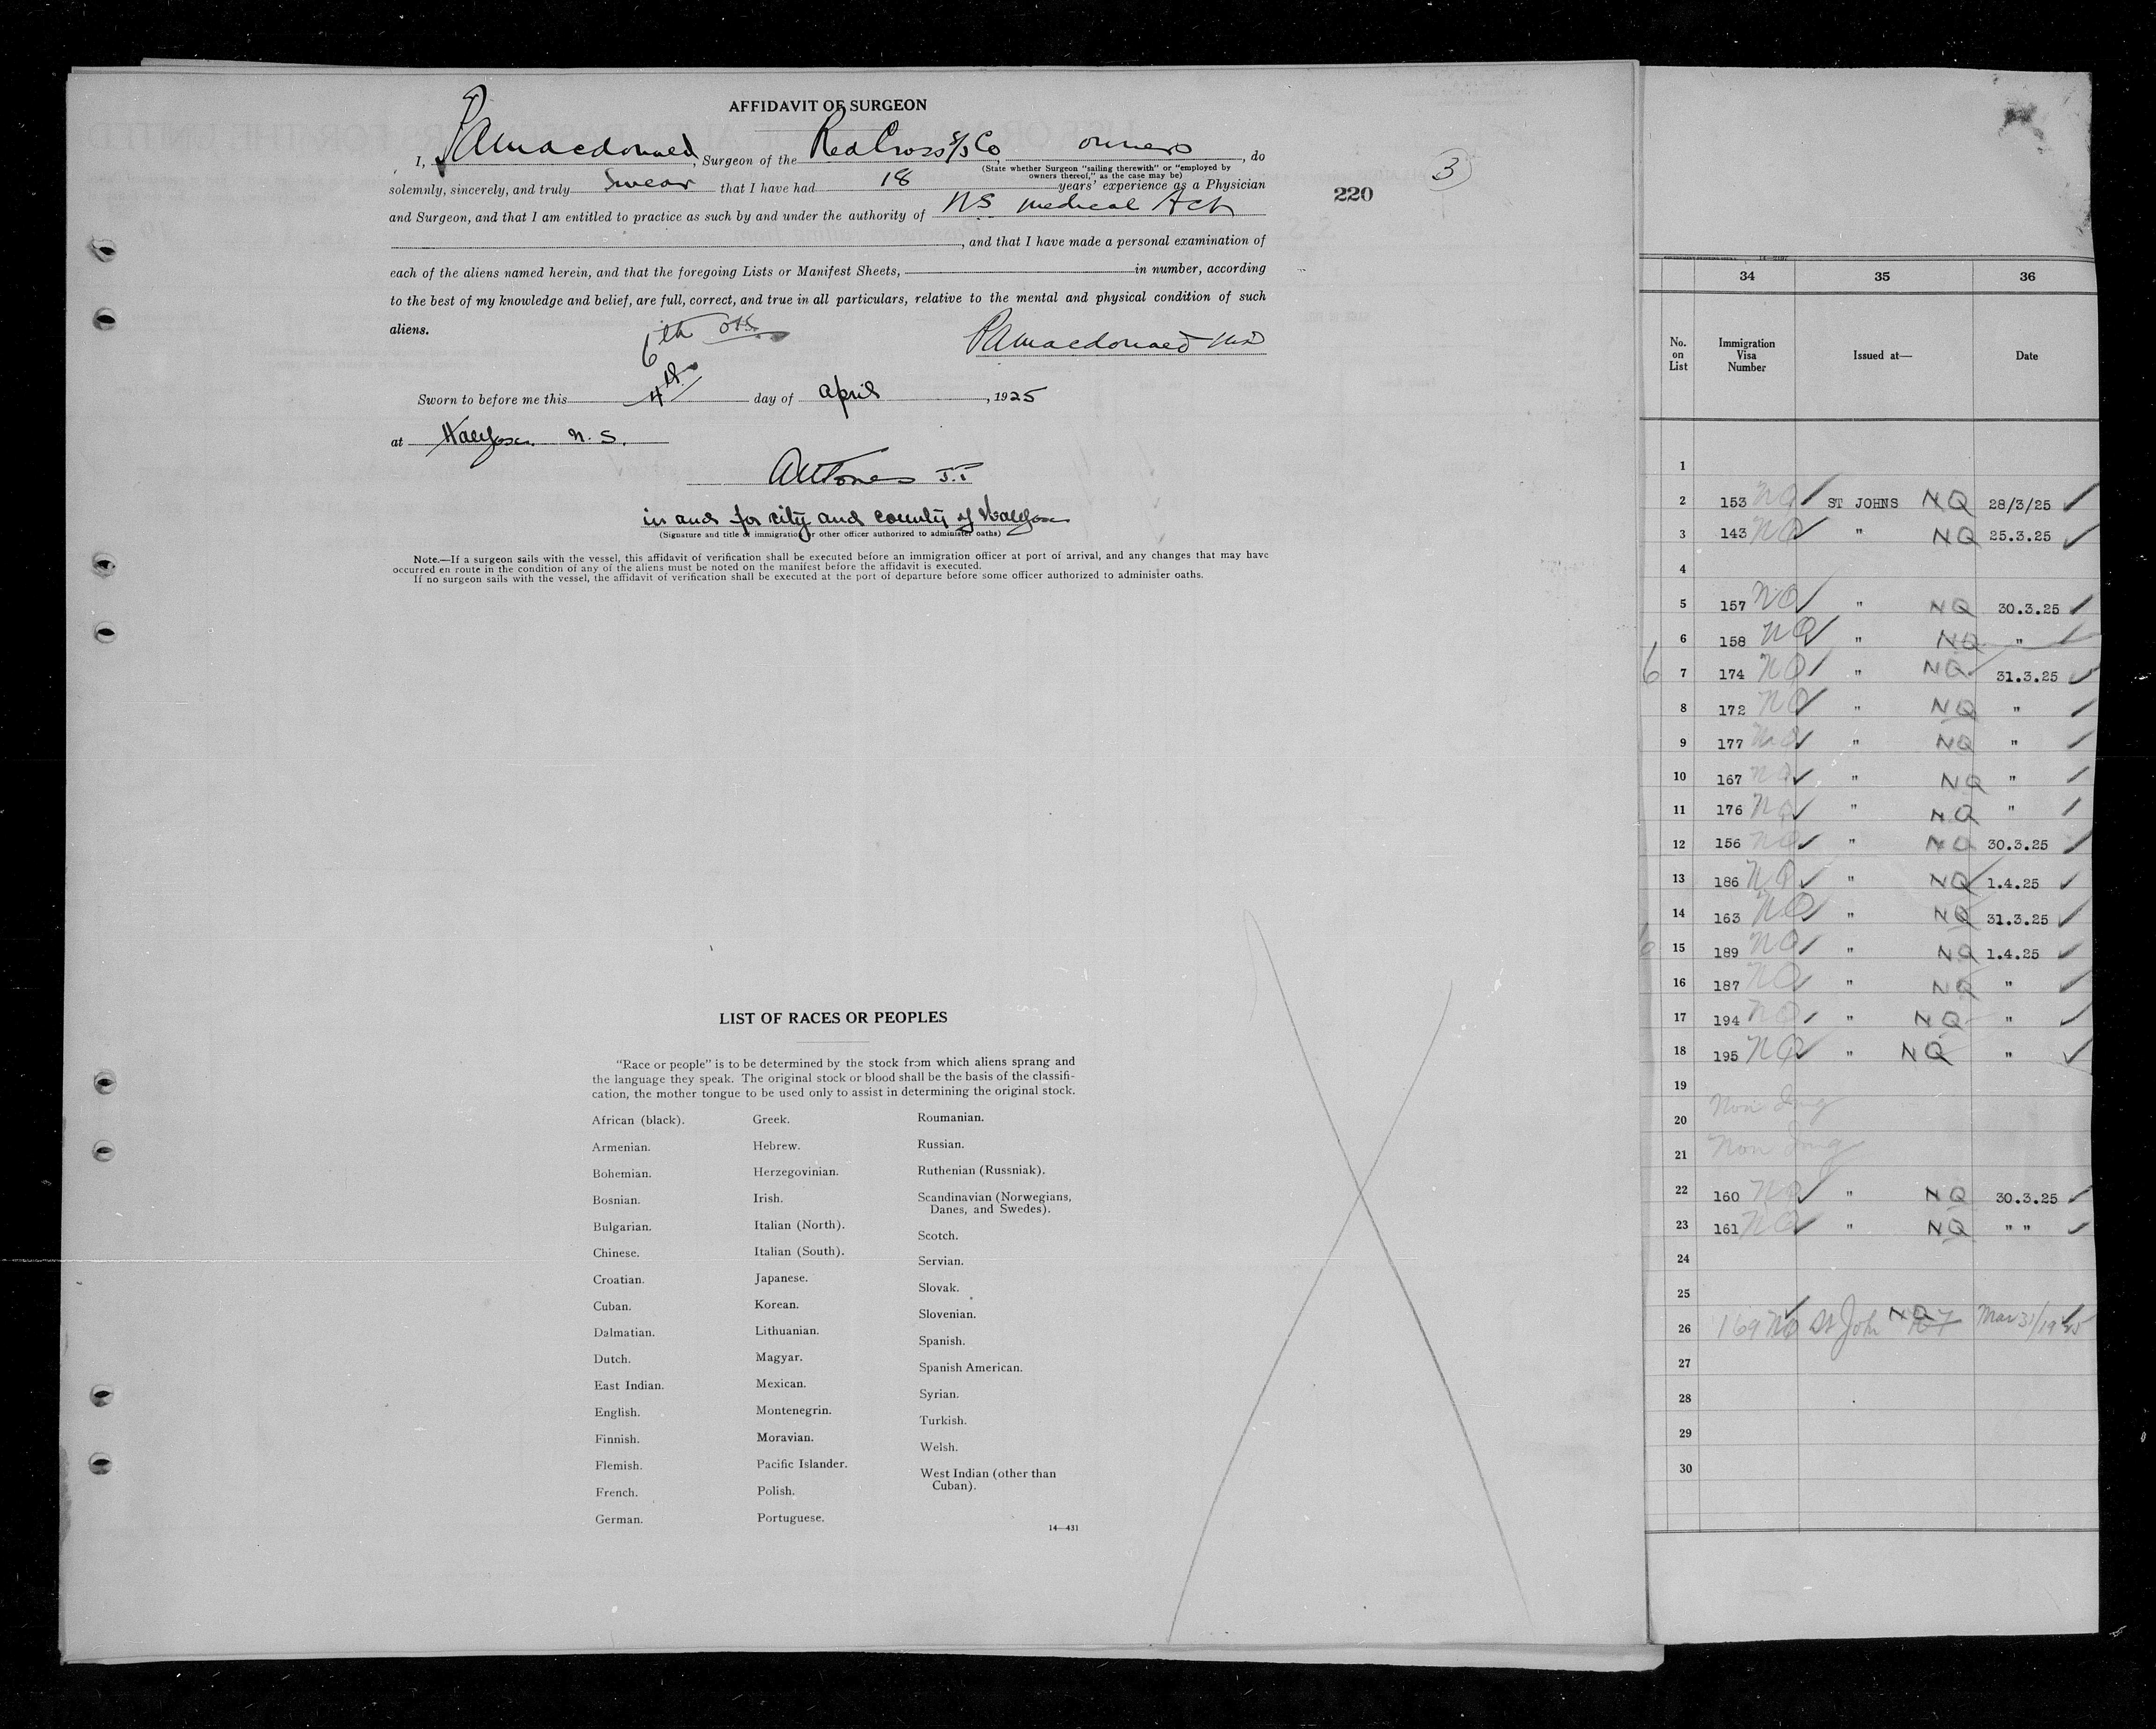 AFFIDAVIT OF SURGEON
I, PAMacdonald, Surgeon of the Red Cross S/S Co, owners, do
(State whether Surgeon "sailing therewith" or "employed by
owners thereof," as the case may be)
solemnly, sincerely, and truly swear that I have had 18 years' experience as a Physician
and Surgeon, and that I am entitled to practice as such by and under the authority of NS medical Act
, and that I have made a personal examination of
each of the aliens named herein, and that the foregoing Lists or Manifest Sheets, in number, according
to the best of my knowledge and belief, are full, correct, and true in all particulars, relative to the mental and physical condition of such
aliens.
6th
PAMacdonald MD
Sworn to before me this 4th day of april, 1925
at Halifax N.S.
J.P
in and for city and county of Halifax
(Signature and title of immigration or other officer authorized to administer oaths)
Note.—If a surgeon sails with the vessel, this affidavit of verification shall be executed before an immigration officer at port of arrival, and any changes that may have
occurred en route in the condition of any of the aliens must be noted on the manifest before the affidavit is executed.
If no surgeon sails with the vessel, the affidavit of verification shall be executed at the port of departure before some officer authorized to administer oaths.
220
3
LIST OF RACES OR PEOPLES
"Race or people" is to be determined by the stock from which aliens sprang and
the language they speak. The original stock or blood shall be the basis of the classifi-
cation, the mother tongue to be used only to assist in determining the original stock.
African (black).
Armenian.
Bohemian.
Bosnian.
Bulgarian.
Chinese.
Croatian.
Cuban.
Dalmatian.
Dutch.
East Indian.
English.
Finnish.
Flemish.
French.
German.
Greek.
Hebrew.
Herzegovinian.
Irish.
Italian (North).
Italian (South).
Japanese.
Korean.
Lithuanian.
Magyar.
Mexican.
Montenegrin.
Moravian.
Pacific Islander.
Polish.
Portuguese.
Roumanian.
Russian.
Ruthenian (Russniak).
Scandinavian (Norwegians,
Danes, and Swedes).
Scotch.
Servian.
Slovak.
Slovenian.
Spanish.
Spanish American.
Syrian.
Turkish.
Welsh.
West Indian (other than
Cuban).
14—431
34 35 36
No. on List Immigration Visa Number Issued at— Date
1
2 153 NQ ST JOHNS NQ 28/3/25
3 143 NQ " NQ 25.3.25
4
5 157 NQ " NQ 30.3.25
6 158 NQ " NQ "
6 7 174 NQ " NQ 31.3.25
8 172 NQ " NQ "
9 177 NQ " NQ "
10 167 NQ " NQ "
11 176 NQ " NQ "
12 156 NQ " NQ 30.3.25
13 186 NQ " NQ 1.4.25
14 163 NQ " NQ 31.3.25
6 15 189 NQ " NQ 1.4.25
16 187 NQ " NQ "
17 194 NQ " NQ "
18 195 NQ " NQ "
19
20 Non Img
21 Non Img
22 160 NQ " NQ 30.3.25
23 161 NQ " NQ " "
24
25
26 169 NQ St John NQ Mar 31/1925
27
28
29
30